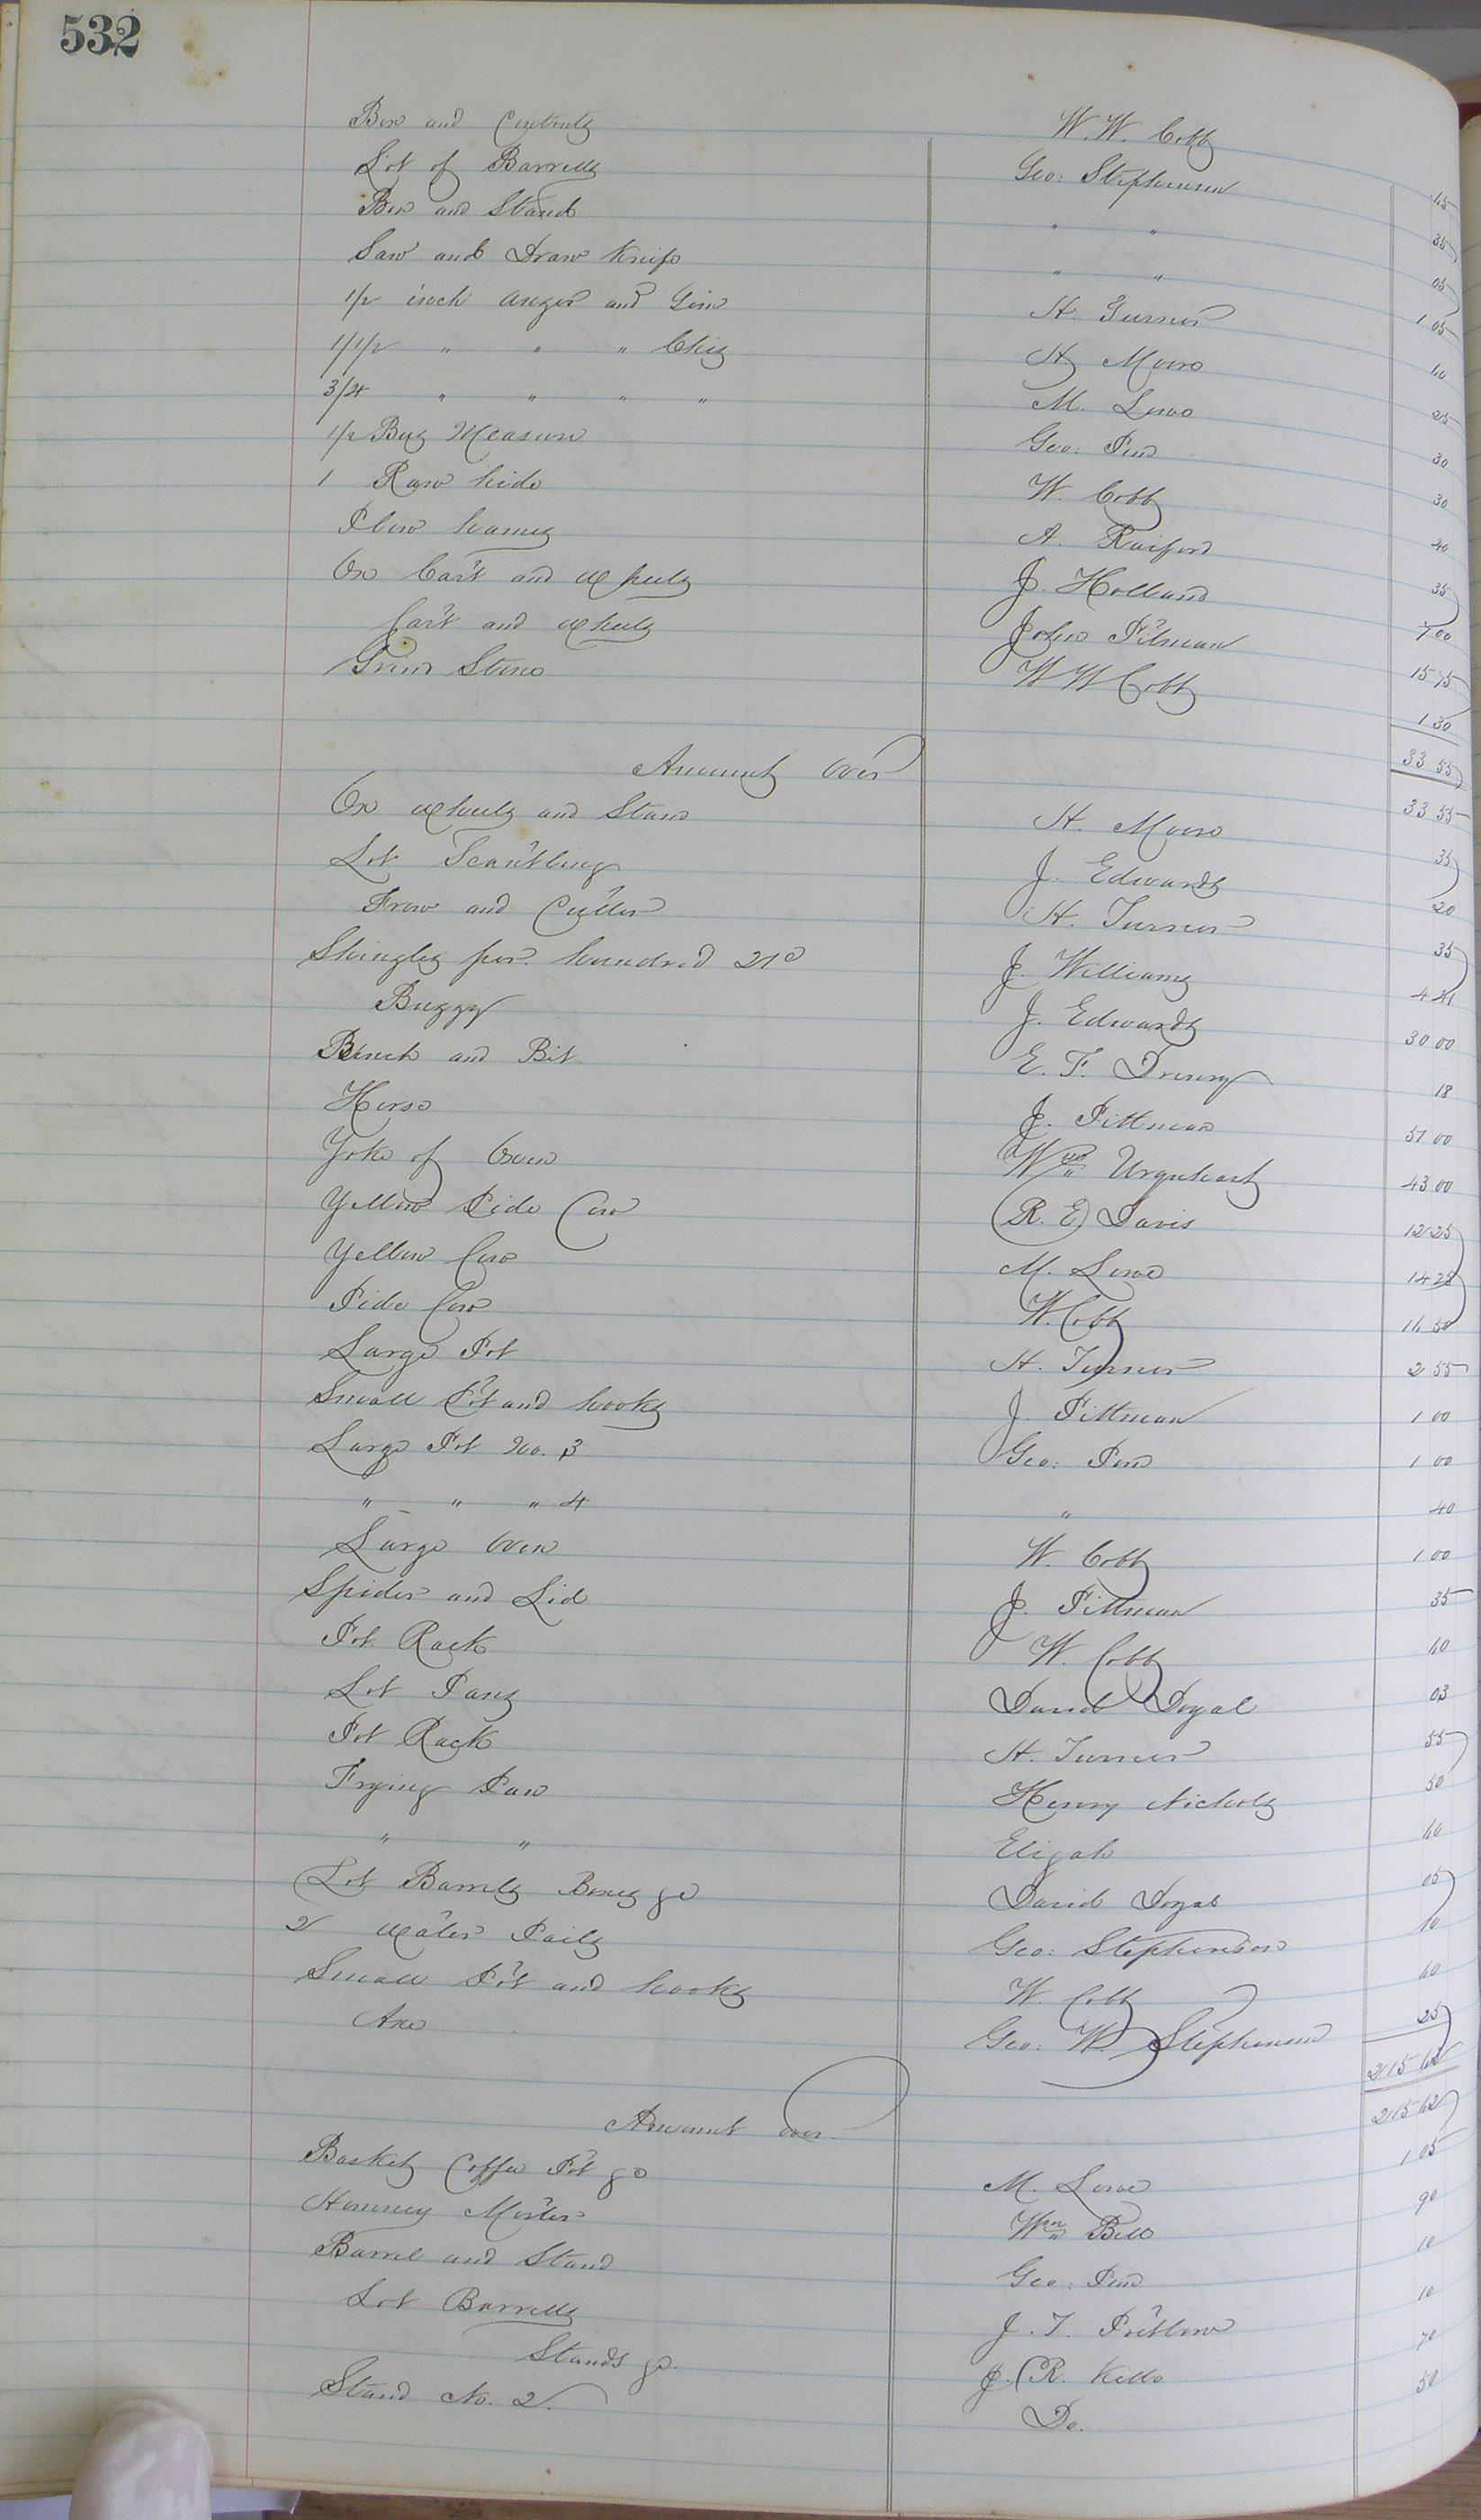 532
Box and Contents W. W. Cobb 15
Lot of Barrells Geo: Stephenson 35
Box and Stand " " 05
Saw and Draw Knife " " 1 05
1/2 inch auger and Gim H. Turner 10
1 1/2 " " " Chis H. Moore 25
3/4 " " " " M. Lowe 30
1/2 Bus Measure Geo: Pend 30
1 Raw hide W. Cobb 20
Plow hames A. Raiford 35
Ox Cart and Wheels J. Holland 7 00
Cart and Wheels John Pitman 15 75
Grind Stone W W Cobb 1 30
33 55
Amount Over 33 55
Ox Wheels and Stand H. Moore 35
Lot Scantling J. Edwards 20
Frow and Cutter H. Turner 35
Shingles per. hundred 21c J. Williams 4 41
Buggy J. Edwards 30 00
Bench and Bit E. F. Drewry 18
Horse J. Pittman 51 00
Yoke of Oxen Wm Urquhart 43 00
Yellow Pide Cow (R. E) Davis 12 25
Yellow Cow M. Lowe 14 25
Pide Cow W. Cobb 11 50
Large Pot H. Turner 2 55
Small Pot and hooks J. Pittman 1 00
Large Pot No. 3 Geo: Pend 1 00
" " " 4 " 40
Large Oven W. Cobb 1 00
Spider and Lid J. Pittman 35
Pot Rack W. Cobb 10
Lot Pans David Doyal 03
Pot Rack H. Turner 55
Frying Pan Henry Nichols 50
" " Elijah 10
Lot Barrells Boxes &c David Doyal 05
2 Water Pails Geo: Stephenson 10
Small Pot and hooks W. Cobb 60
Axe Geo: W. Stephenson 25
215 62
Amount over. 215 62
Baskets Coffee Pot &c M. Lowe 1 05
Hominy Morter Wm Bell 90
Barrel and Stand Geo: Pend 10
Lot Barrells J. T. Pretlow 10
Stands &c. J. R. Kello 70
Stand No. 2. Do. 50